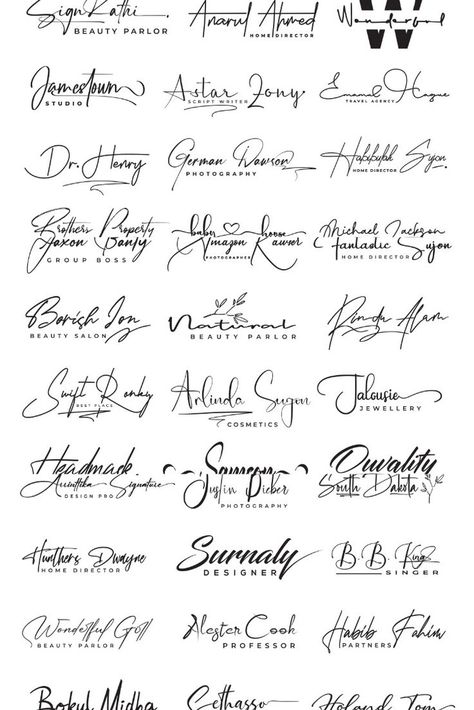 SignRathi
BEAUTY PARLOR
Anarul Ahmed
HOME DIRECTOR
Wonderbud
W
Jamestown
STUDIO
Astar Zony
SCRIPT WRITER
Enamal Hague
TRAVEL AGENCY
Dr. Henry
German Dawson
PHOTOGRAPHY
Habibulah Syon
HOME DIRECTOR
Brothers Property
Jaxon Banty
GROUP BOSS
baby house
Amazon Rawser
PHOTOGRAPHER
Michael Jackson
fantastic Sujon
HOME DIRECTOR
Borish Jon
BEAUTY SALON
Natural
BEAUTY PARLOR
Rindu Alam
Swift Ronky
BEST PLACE
Arlinda Sugen
COSMETICS
Jalousie
JEWELLERY
Headmade
Arinthika Signature
DESIGN PRO
Justin Dieber
PHOTOGRAPHY
Quvality
South Dakota
Hunthers Dwayne
HOME DIRECTOR
Surnaly
DESIGNER
B.B. King
SINGER
Wonderful Goll
BEAUTY PARLOR
Alester Cook
PROFESSOR
Habib Fahim
PARTNERS
Bokul Midha
Sethasso
Holand Tom